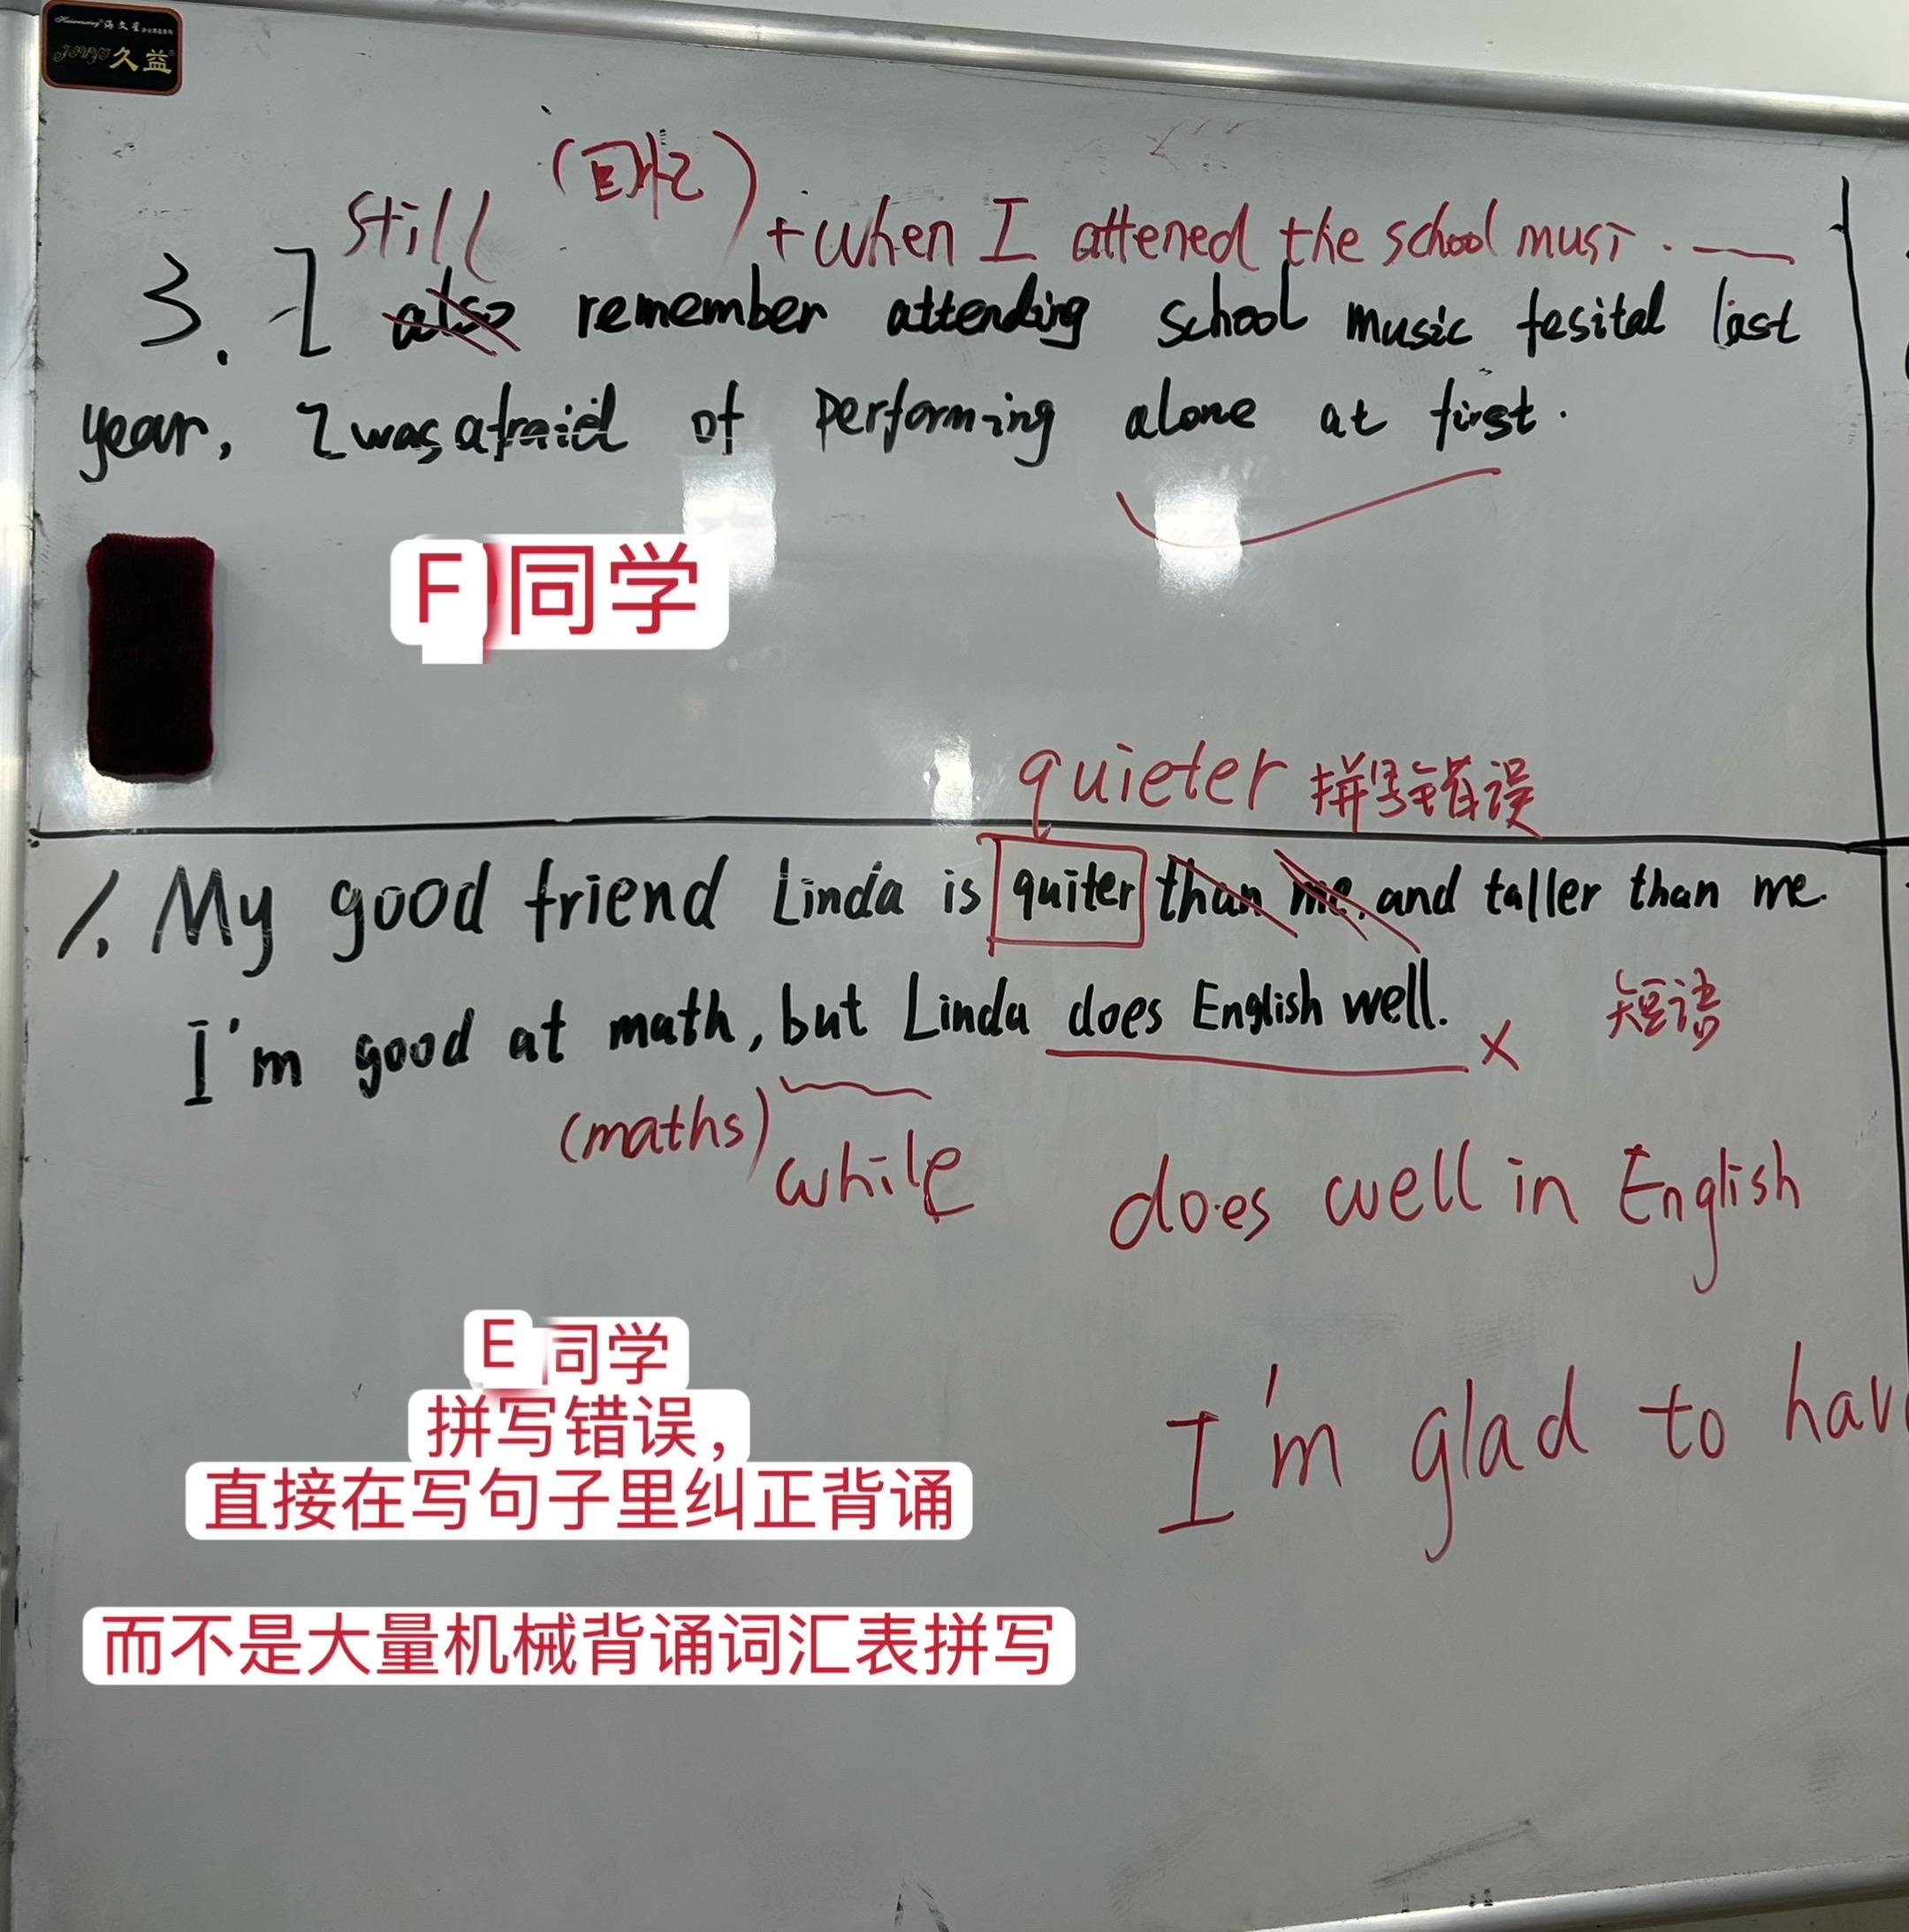 久益
(回忆)
still + when I attened the school musi.
3. I also remember attending school music fesital last
year, I was afraid of performing alone at first.
F 同学
quieter 拼写错误
1. My good friend Linda is quiter than me, and taller than me.
I'm good at math, but Linda does English well. × 短语
(maths) while does well in English
E 同学
拼写错误，
直接在写句子里纠正背诵
I'm glad to hav
而不是大量机械背诵词汇表拼写